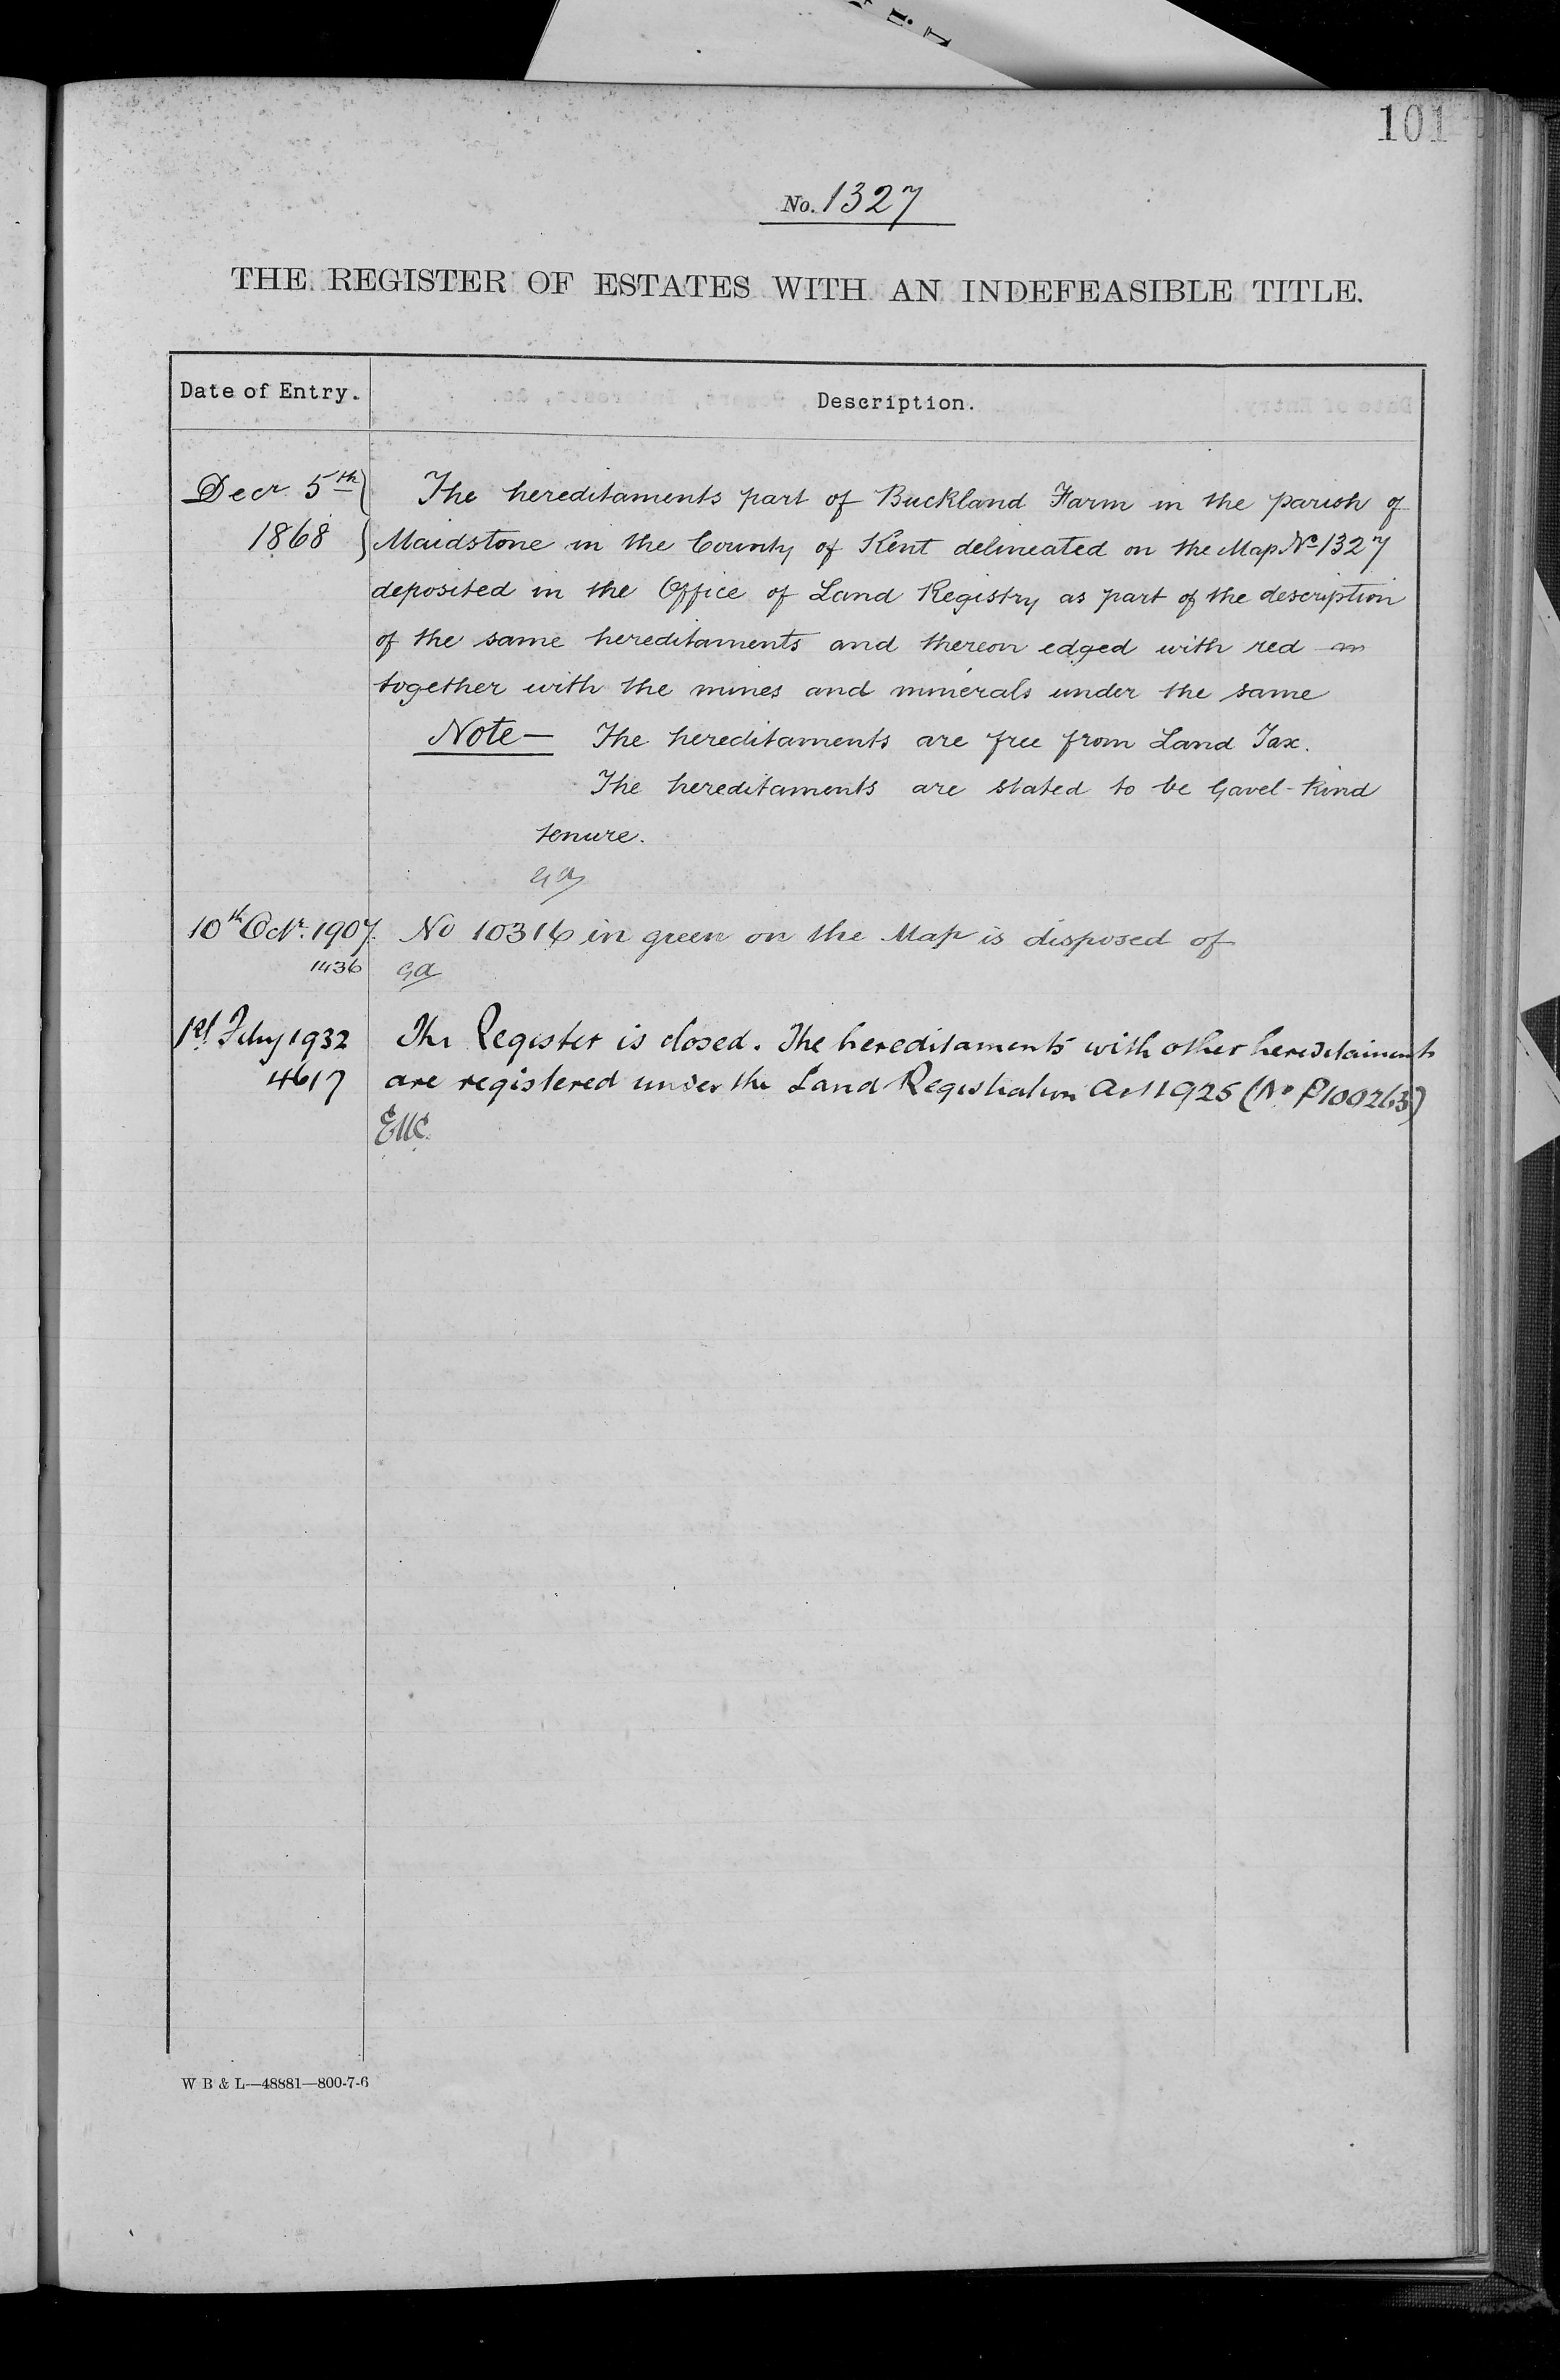 101
No. 1327
THE REGISTER OF ESTATES WITH AN INDEFEASIBLE TITLE.
Date of Entry. Description.
Decr. 5th The hereditaments part of Buckland Farm in the parish of
1868 Maidstone in the County of Kent delineated on the Map No 1327
deposited in the Office of Land Registry as part of the description
of the same hereditaments and thereon edged with red
together with the mines and minerals under the same
Note — The hereditaments are free from Land Tax.
The hereditaments are stated to be Gavel-kind
tenure.
10th Octr. 1907. No 10316 in green on the Map is disposed of
1436 Ga
1st Feby 1932 The Register is closed. The hereditaments with other hereditaments
4617 are registered under the Land Registration Act 1925 (No P100263)
W B & L—48881—800-7-6